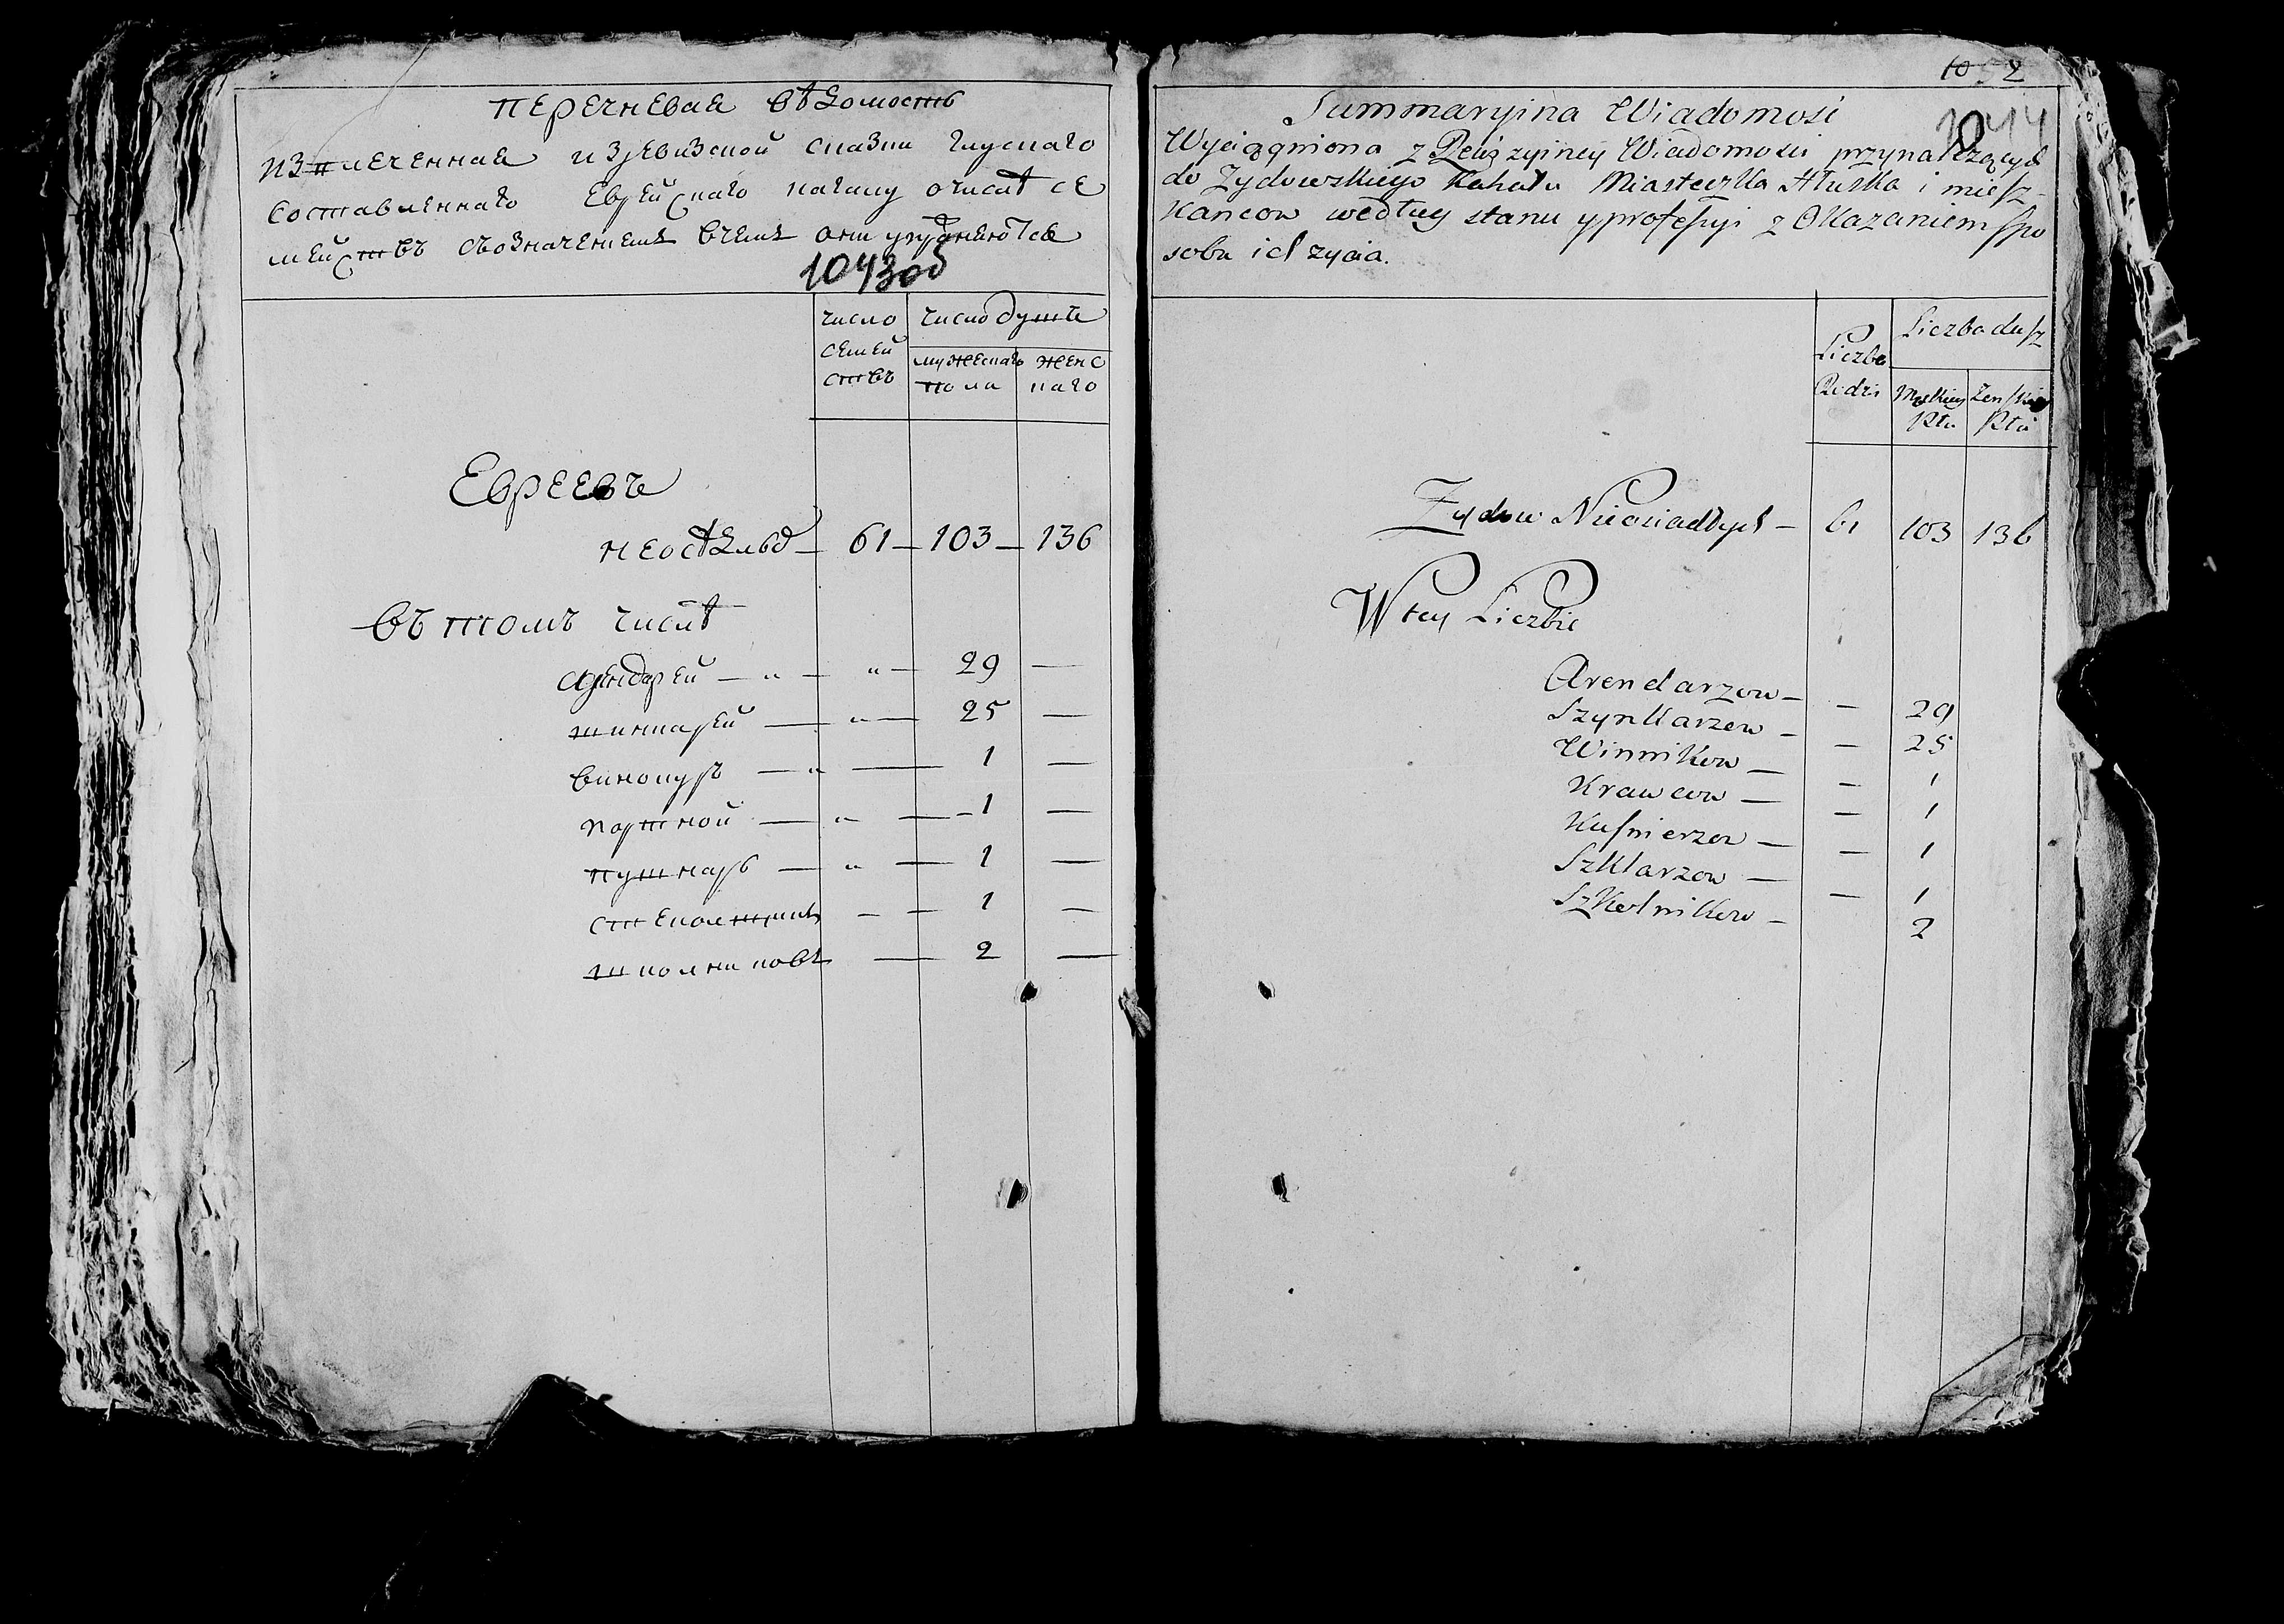 перечневая вѣдомость
извлеченная изревизской сказки глускаго
составленнаго Еврейскаго кагалу очислѣ се
мействъ съозначениемъ вчемъ они упражняются
1043 об
число числодушъ
семей
ствъ мужескаго пола женскаго
Евреевъ
неосѣдлых — 61 — 103 — 136
въ томъ числѣ
арендарей — „ — „ — 29 —
шинкарей — „ — 25 —
винокуръ — „ — 1 —
портной — „ — 1 —
кушнаръ — „ — 1 —
стекольщикъ — — 1 —
школниковъ — 2 —
1052
1044
Summaryina Wiadomosć
Wyciągniona z Rewizyiney Wiadomosci przynależących
do Zydowskiego Kahału Miasteczka Hłuska i miesz-
kancow według stanu y professyi z Okazaniem spo
sobu ich zycia.
Liczba Liczba dusz
Rodzin Męskiey Płci Zenskiey Płci
Zydow Nieosiadłych — 61 103 136
W tey Liczbie
Arendarzow — — 29
Szynkarzow — — 25
Winnikow — — 1
Krawcow — — 1
Kusnierzow — — 1
Szklarzow — — 1
Szkolnikow — 2